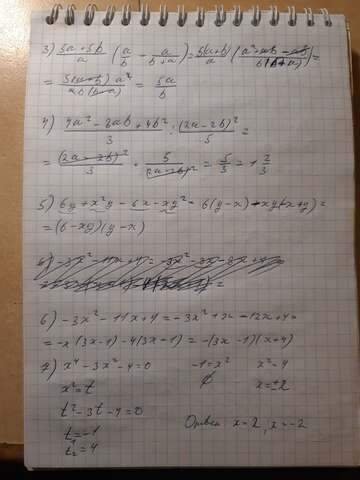 3) (5a+5b)/a (a/b - a/(b+a)) = (5a+5b)/a ((a²+ab-ab)/(b(b+a))) =
= 5(a+b)a²/(ab(b+a)) = 5a/b
4) (4a²-8ab+4b²)/3 : (2a-2b)²/5 =
= (2a-2b)²/3 · 5/(2a-2b)² = 5/3 = 1 2/3
5) 6y+x²y-6x-xy² = 6(y-x)-xy(-x+y) =
= (6-xy)(y-x)
6) -3x²-11x+4 = -3x²+x-12x+4=
= -x(3x-1)-4(3x-1) = -(3x-1)(x+4)
7) x⁴-3x²-4=0 -1=x² x²=4
x²=t ∅ x=±2
t²-3t-4=0
t₁=-1 Ответ: x=2, x=-2
t₂=4